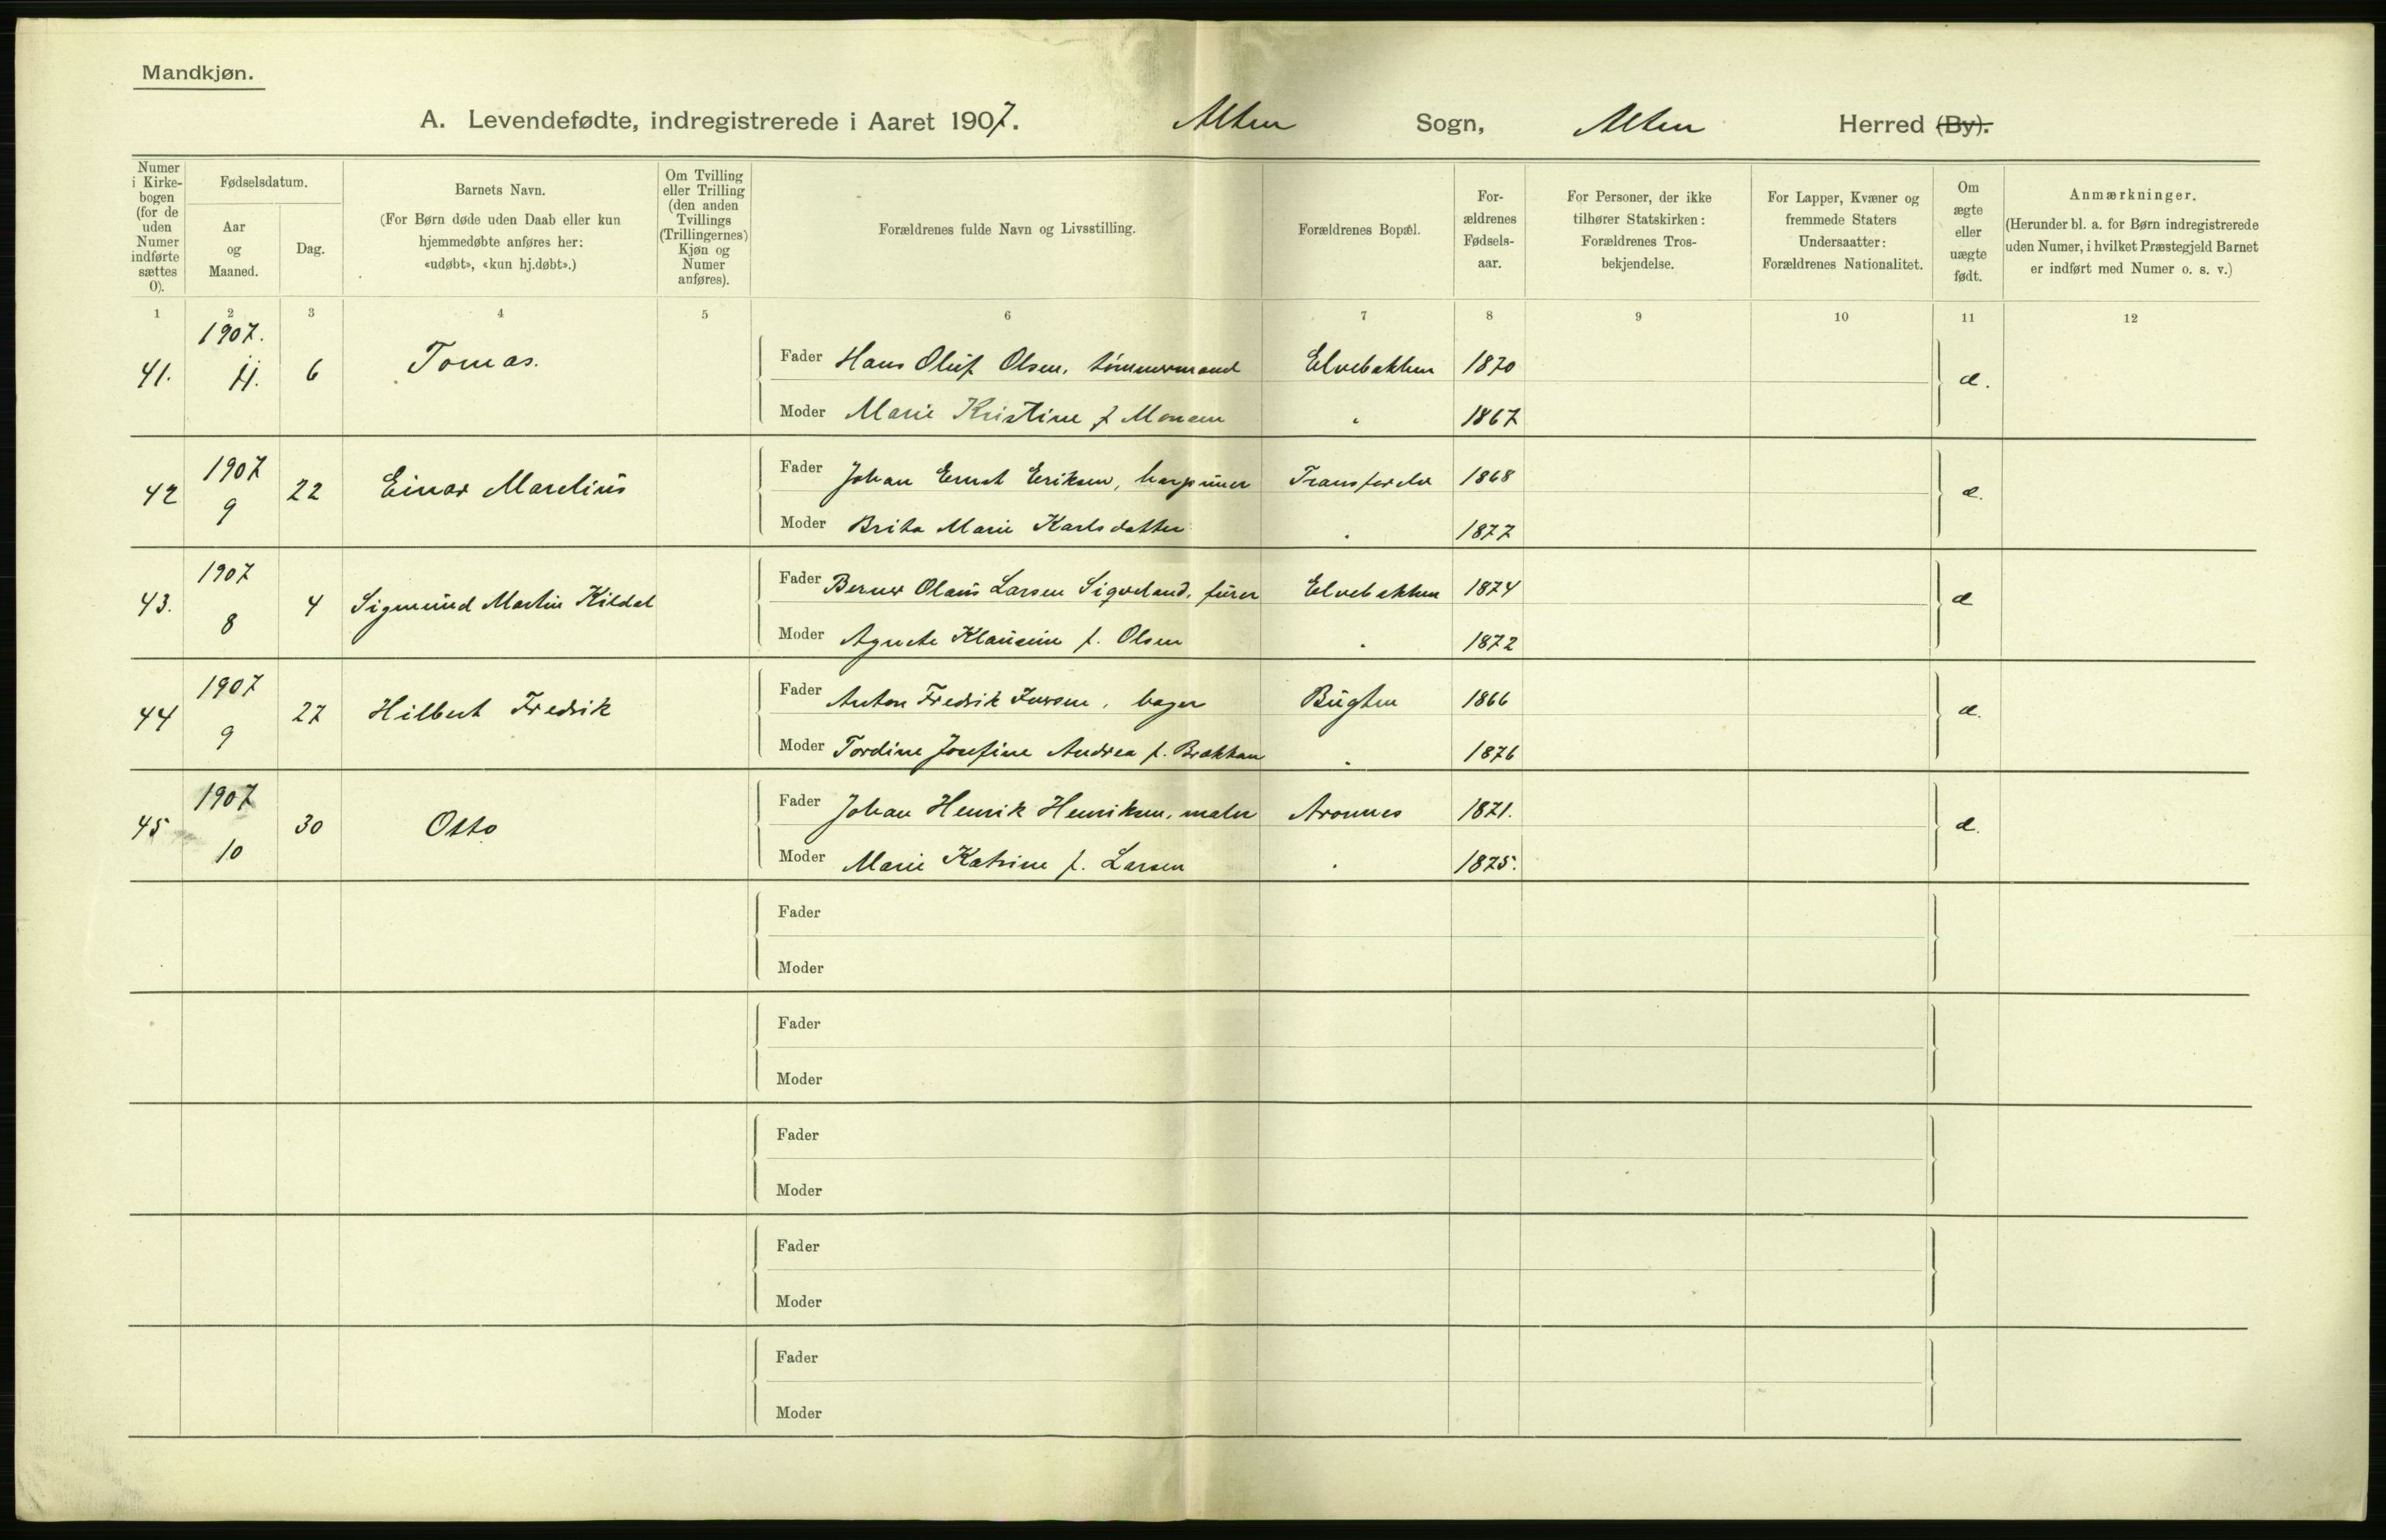 Mandkjøn.
A. Levendefødte, indregistrerede i Aaret 1907. Alten Sogn, Alten Herred (By).
Numer i Kirkebogen (for de uden Numer indførte sættes 0).
Fødselsdatum.
Aar og Maaned.
Dag.
Barnets Navn.
(For Børn døde uden Daab eller kun hjemmedøbte anføres her: «udøbt», «kun hj.døbt».)
Om Tvilling eller Trilling (den anden Tvillings (Trillingernes) Kjøn og Numer anføres).
Forældrenes fulde Navn og Livsstilling.
Forældrenes Bopæl.
Forældrenes Fødselsaar.
For Personer, der ikke tilhører Statskirken: Forældrenes Trosbekjendelse.
For Lapper, Kvæner og fremmede Staters Undersaatter: Forældrenes Nationalitet.
Om ægte eller uægte født.
Anmærkninger.
(Herunder bl. a. for Børn indregistrerede uden Numer, i hvilket Præstegjeld Barnet er indført med Numer o. s. v.)
1 2 3 4 5 6 7 8 9 10 11 12
41. 1907. 11. 6 Tomas. Fader Hans Oluf Olsen, tømmermand Elvebakken 1870 æ.
Moder Marie Kristine f. Monsen " 1867
42 1907 9 22 Einar Marelius Fader Johan Ernst Eriksen, harpuner Transfarelv 1868 æ.
Moder Brita Marie Karlsdatter " 1877
43. 1907 8 4 Sigmund Martin Kildal Fader Berner Olaus Larsen Sigveland, furer Elvebakken 1874 æ
Moder Agnete Klausine f. Olsen " 1872
44 1907 9 27 Hilbert Fredrik Fader Anton Fredrik Iversen, bager Bugten 1866 æ.
Moder Tordine Josefine Andrea f. Brakkan " 1876
45 1907 10 30 Otto Fader Johan Henrik Henriksen, maler Aronnes 1871. æ.
Moder Marie Katrine f. Larsen " 1875.
Fader
Moder
Fader
Moder
Fader
Moder
Fader
Moder
Fader
Moder